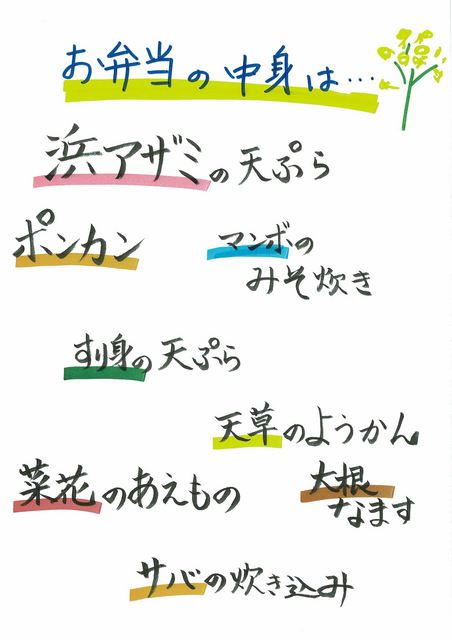 お弁当の中身は…
浜アザミの天ぷら
ポンカン
マンボの
みそ炊き
すり身の天ぷら
天草のようかん
菜花のあえもの
大根
なます
サバの炊き込み